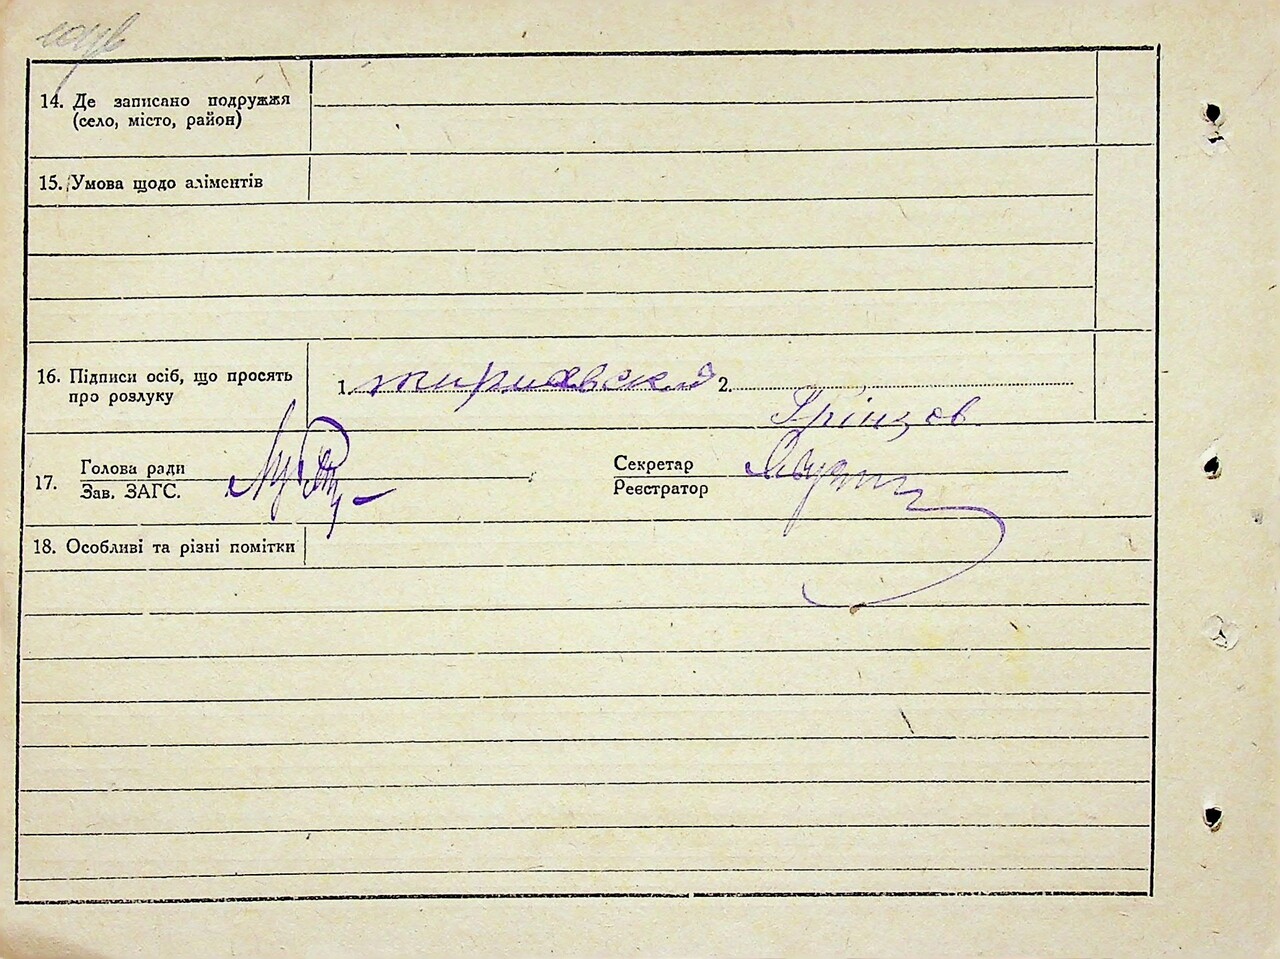 14. Де записано подружжя
(село, місто, район)
15. Умова щодо аліментів
16. Підписи осіб, що просять
про розлуку
1. 2.
Грінцов
17. Голова ради
Зав. ЗАГС.
Секретар
Реєстратор
18. Особливі та різні помітки